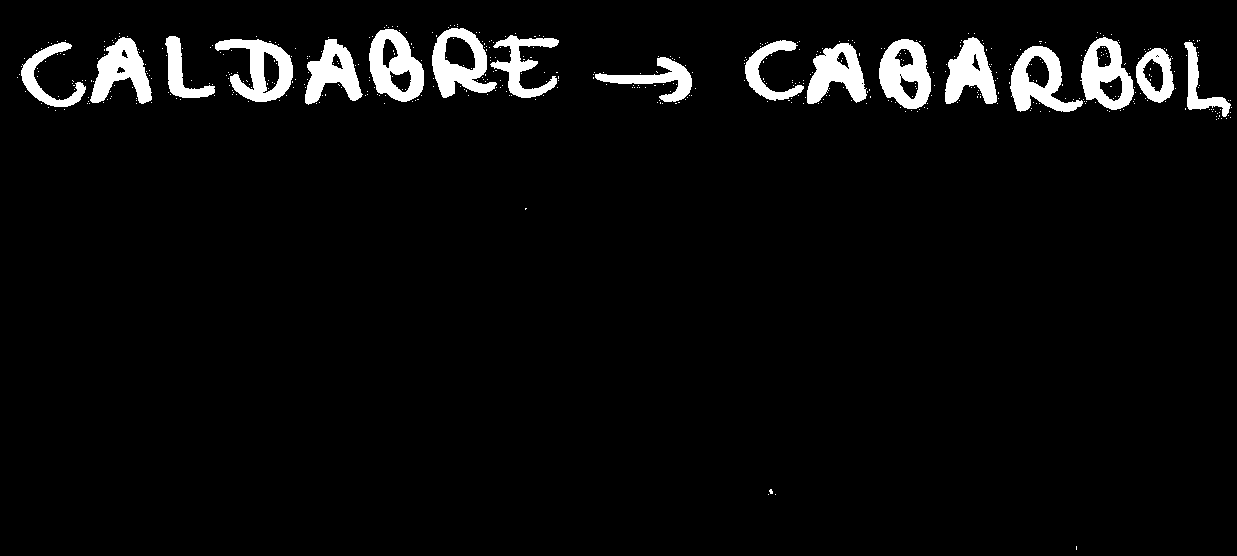 CALDABRE → CABARBOL